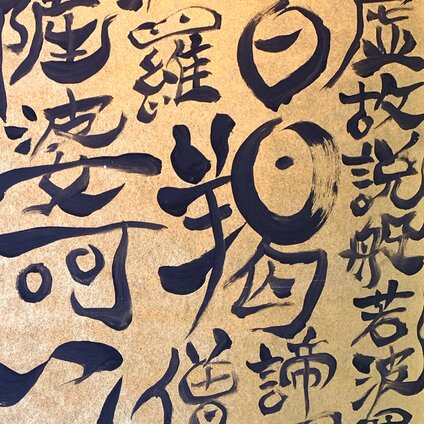 虚故説般若波
曰羯諦
羅僧
薩婆可